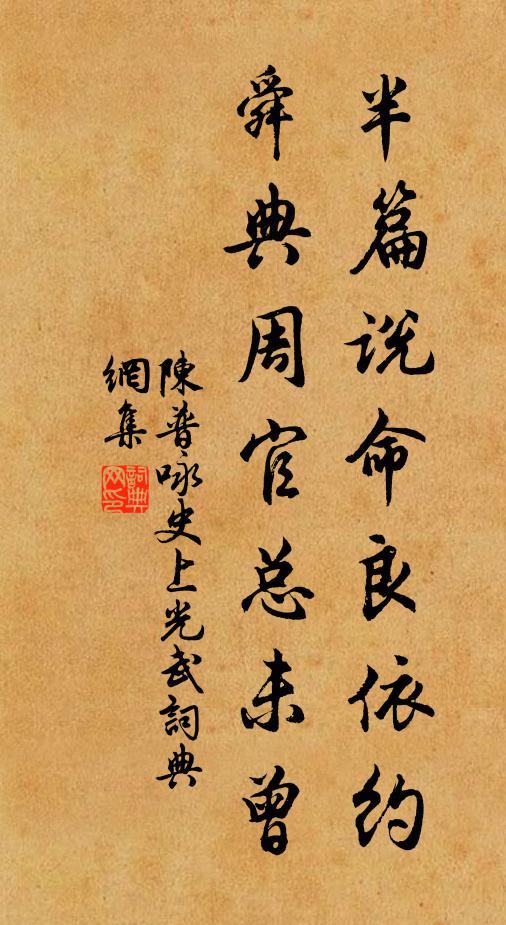 半篇说命良依约
舜典周官总未曾
陳普咏史上光武詞典
網集
詞典
网印